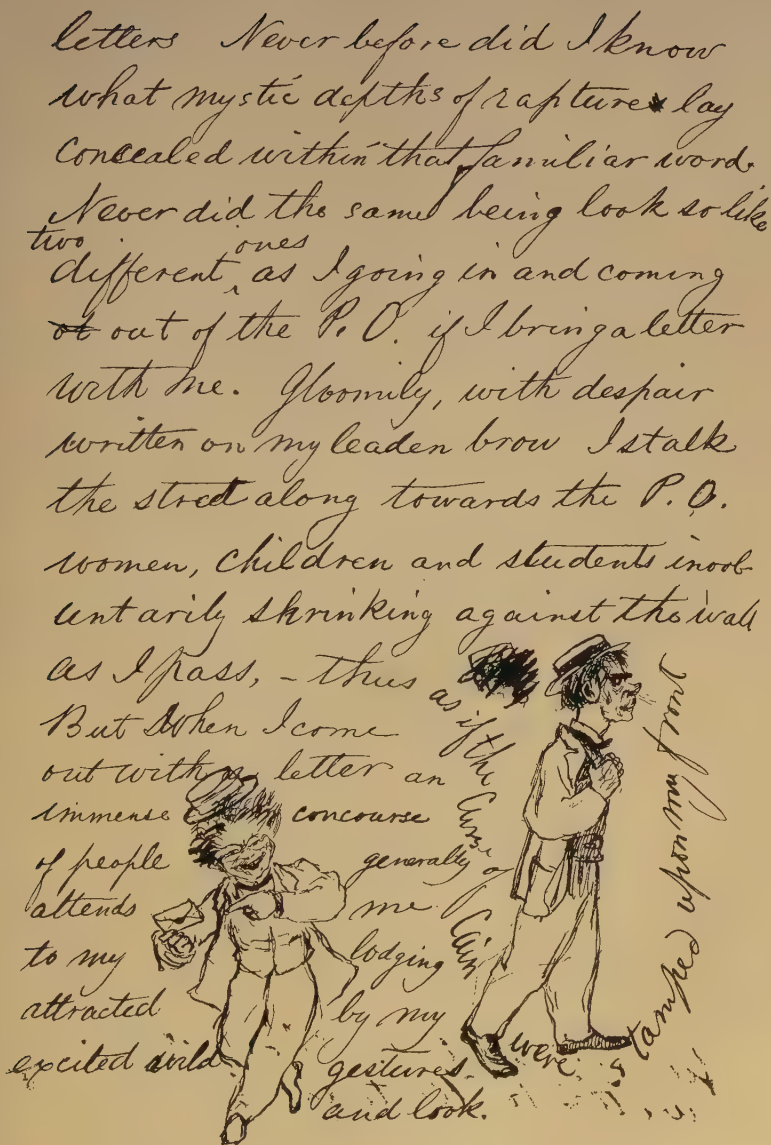 letters Never before did I know
what mystic depths of rapture lay
concealed within that familiar word.
Never did the same being look so like
two different ones as I going in and coming
out of the P. O. if I bring a letter
with me. Gloomily, with despair
written on my leaden brow I stalk
the street along towards the P. O.
women, children and students invol-
untarily shrinking against the wall
as I pass, – thus
as if the Curse of Cain were stamped upon my front
But when I come
out with a letter an
immense concourse
of people generally
attends me
to my lodging
attracted by my
excited wild gestures
and look.